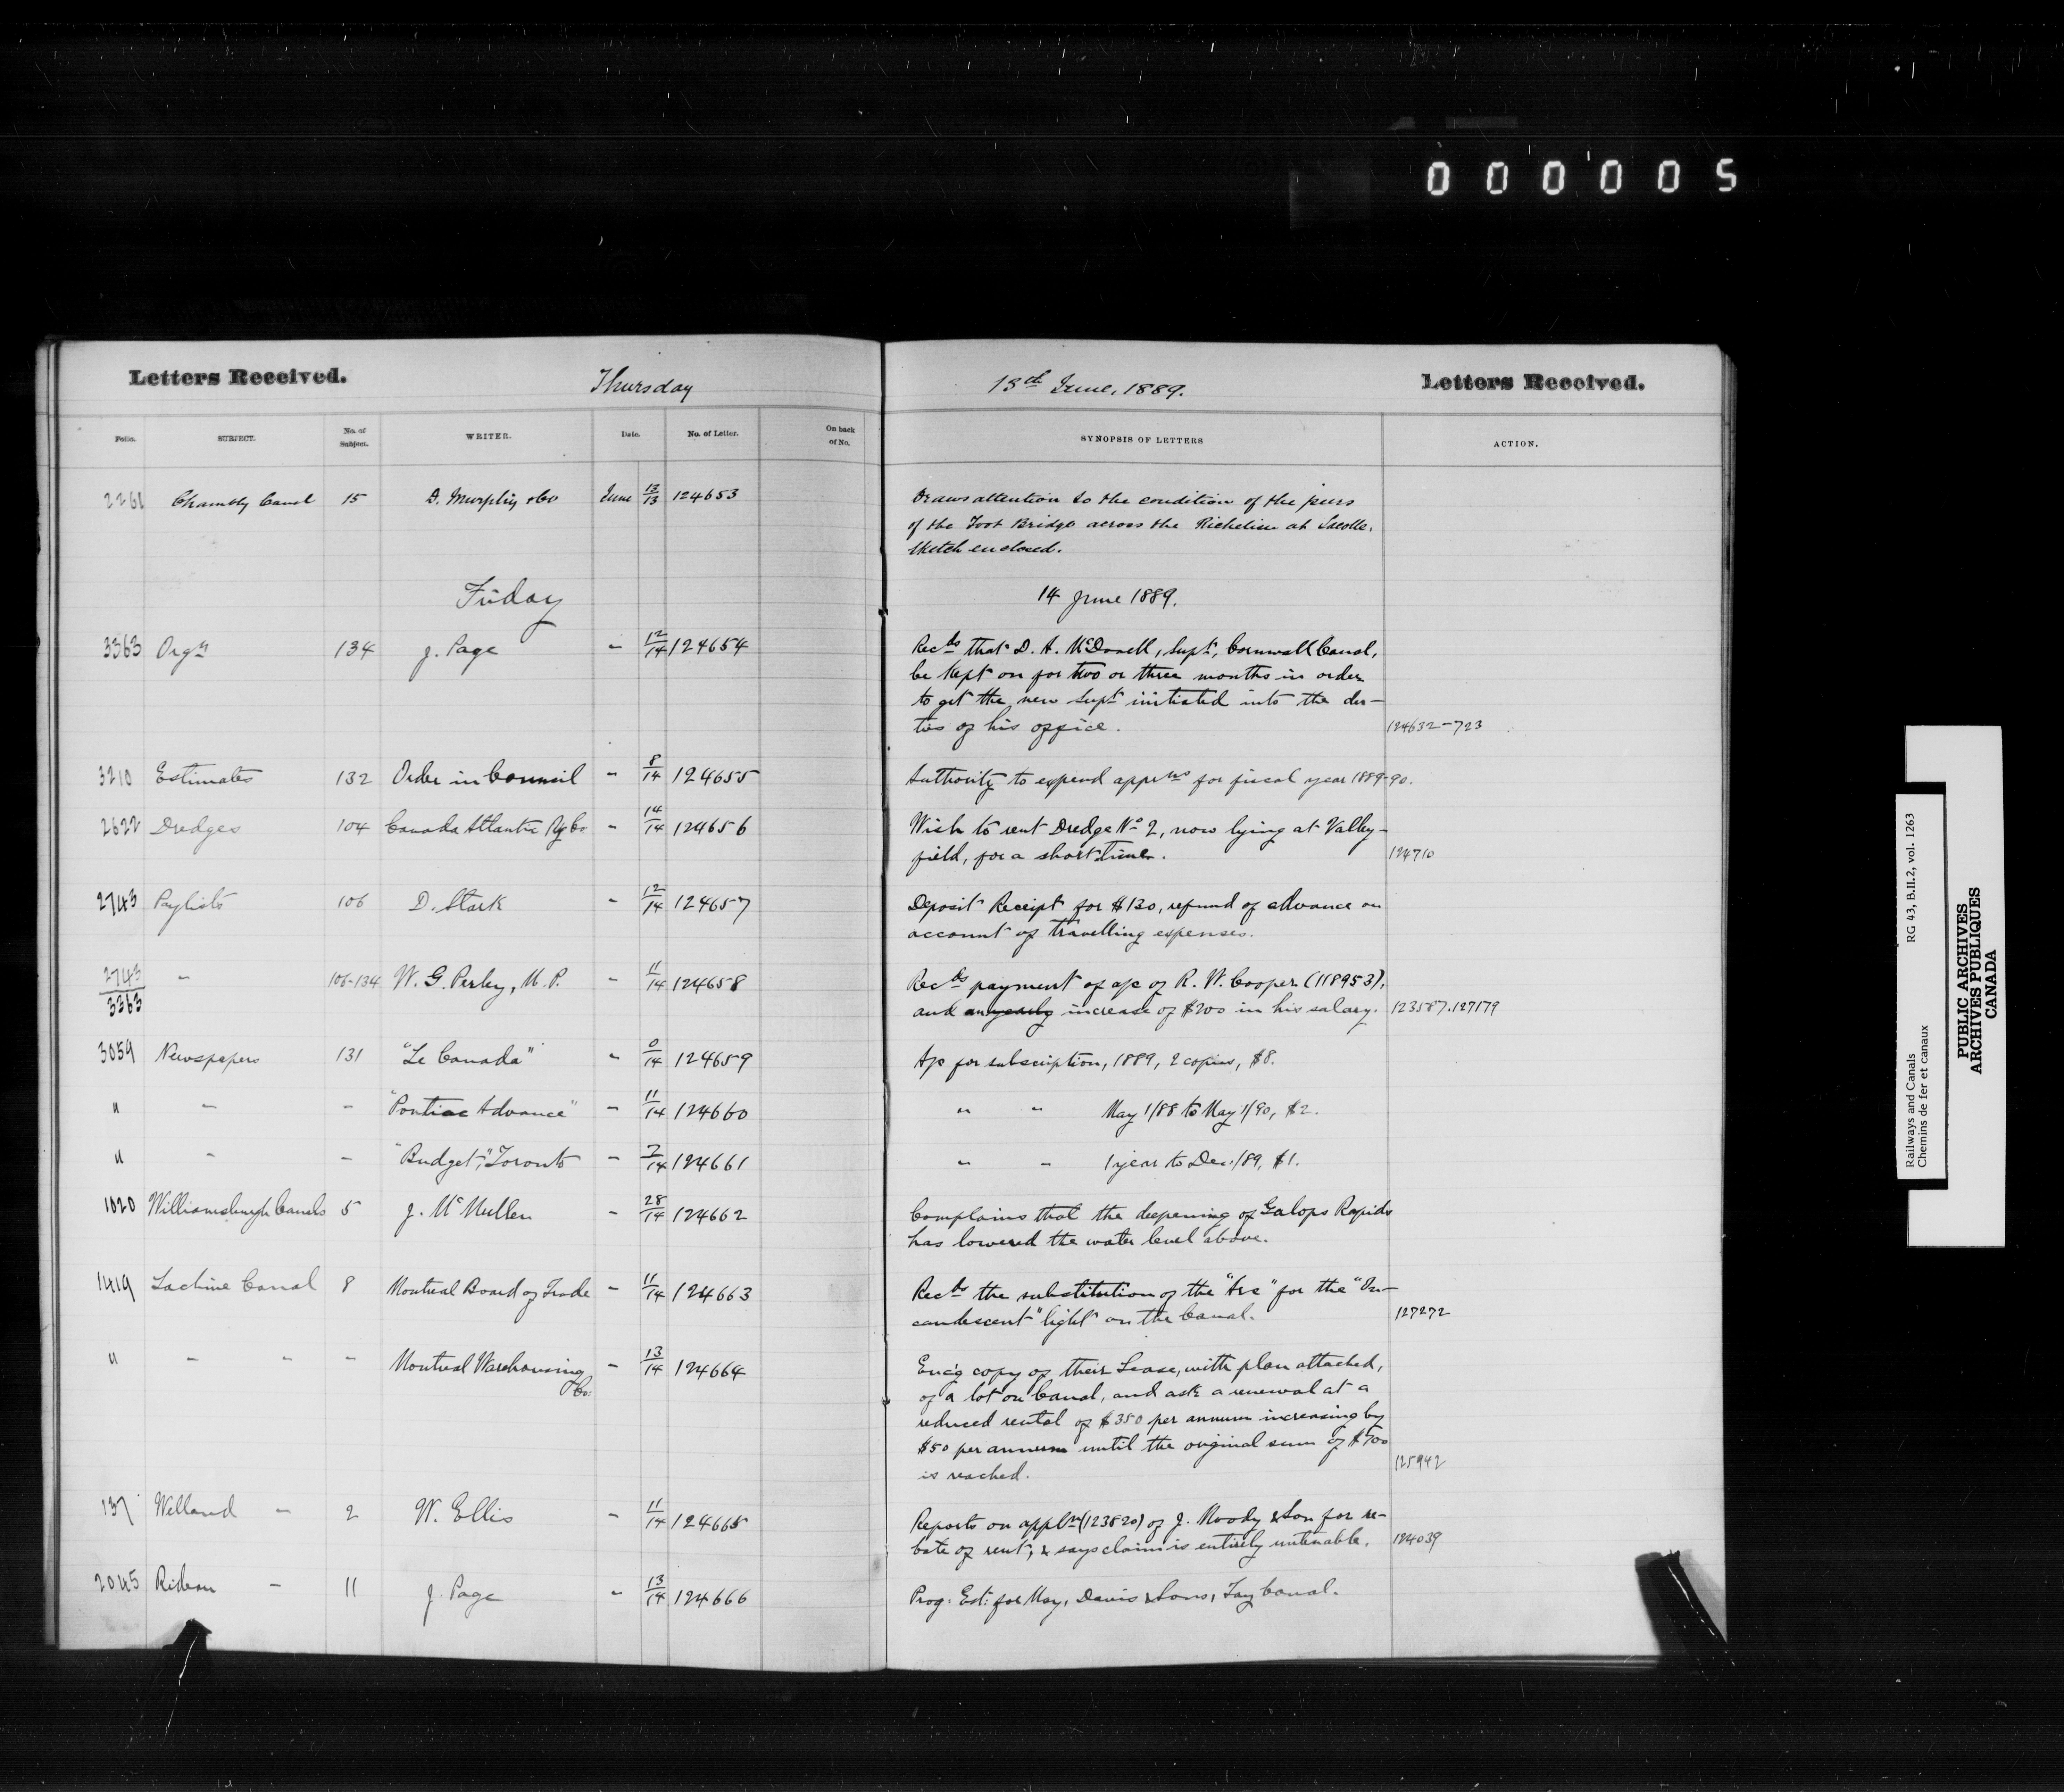 0 0 0 0 0 5
Letters Received. Thursday 13th June, 1889. Letters Received.
Folio. SUBJECT. No. of Subject. WRITER. Date. No. of Letter. On back of No. SYNOPSIS OF LETTERS ACTION.
2261 Chambly Canal 15 D. Murphy & Co June 13/13 124653 Draws attention to the condition of the piers
of the Foot Bridge across the Richelieu at Lacolle.
Sketch enclosed.
Friday 14 June 1889.
3363 Orgn 134 J. Page - 12/14 124654 Recds that D. A. McDonell, Supt, Cornwall Canal,
be kept on for two or three months in order
to get the new Supt initiated into the du-
ties of his office. 124632-723
3210 Estimates 132 Order in Council - 8/14 124655 Authority to expend apprns for fiscal year 1889-90.
2622 Dredges 104 Canada Atlantic Ry Co - 14/14 124656 Wish to rent Dredge No 2, now lying at Valley-
field, for a short time. 124710
2743 Paylists 106 D. Stark - 12/14 124657 Deposit Receipt for $130, refund of advance on
account of travelling expenses.
2743/3363 - 106-134 W. G. Perley, M.P. - 11/14 124658 Recds payment of a/c of R. W. Cooper (118953),
and an yearly increase of $200 in his salary. 123587.127179
3059 Newspapers 131 "Le Canada" - 0/14 124659 A/c for subscription, 1889, 2 copies, $8.
" - - "Pontiac Advance" - 11/14 124660 " " May 1/88 to May 1/90, $2.
" - - "Budget," Toronto - 7/14 124661 " - 1 year to Dec/89, $1.
1020 Williamsburgh Canals 5 J. McMullen - 28/14 124662 Complains that the deepening of Galops Rapids
has lowered the water level above.
1419 Lachine Canal 8 Montreal Board of Trade - 11/14 124663 Recds the substitution of the "Arc" for the "In-
candescent" light on the Canal. 127272
" - - - Montreal Warehousing Co: - 13/14 124664 Enc'g copy of their Lease, with plan attached,
of a lot on Canal, and ask a renewal at a
reduced rental of $350 per annum increasing by
$50 per annum until the original sum of $700
is reached. 125942
137 Welland - 2 W. Ellis - 11/14 124665 Reports on appln (123820) of J. Moody & Son for re-
bate of rent, & says claim is entirely untenable. 124039
2045 Rideau - 11 J. Page - 13/14 124666 Prog: Est: for May, Davis & Sons, Tay Canal.
Railways and Canals RG 43, B.II.2, vol. 1263
Chemins de fer et canaux
PUBLIC ARCHIVES
ARCHIVES PUBLIQUES
CANADA